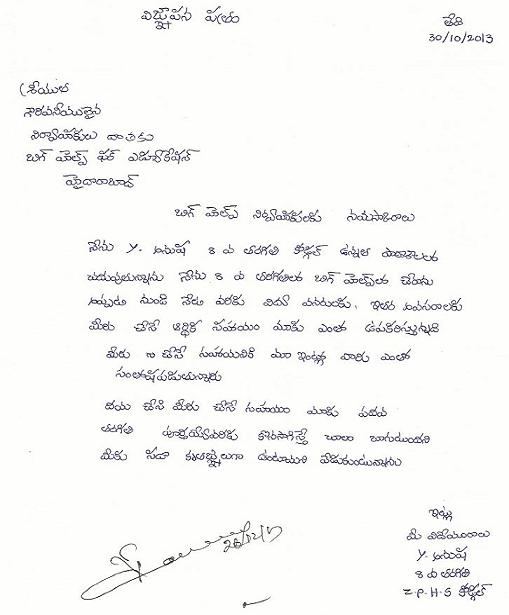 విజ్ఞాపన పత్రం
తేది
30/10/2013
శ్రీయుత
గౌరవనీయులైన
నిర్వాహకులు దాతకు
బిగ్ హెల్ప్ ఫర్ ఎడ్యూకేషన్
హైదరాబాద్
బిగ్ హెల్ప్ నిర్వాహకులకు నమస్కారాలు
నేను Y. అనుష 8 వ తరగతి కొడ్గల్ ఉన్నత పాఠశాలలో
చదువుతున్నాను నేను 8 వ తరగతిలో బిగ్ హెల్ప్‌లో చేరాను
అప్పుడు నుండి నేడు వరకు విద్యా వసతులకు, ఇతర అవసరాలకు
మీరు చేసే ఆర్థిక సహాయం మాకు ఎంతో ఉపకరిస్తున్నాది
మీరు చేసే సహయానికి మా ఇంట్లో వారు ఎంతో
సంతోషపడుతున్నారు
దయ చేసి మీరు చేసే సహయం మాకు పదవ
తరగతి పూర్తయ్యేవరకు కొనసాగిస్తే చాలా బాగుటుందని
మీకు సదా కృతజ్ఞులుగా ఉంటాయని వేడుకుంటున్నాను
ఇట్లు
మీ విదేయురాలు
Y. అనుష
8 వ తరగతి
Z.P.H.S కొడ్గల్
26/12/13